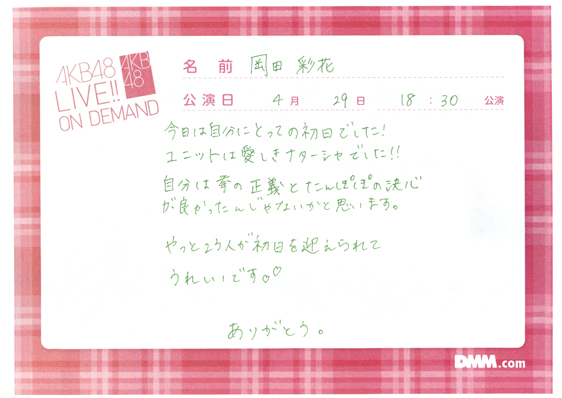 AKB48
LIVE!!
ON DEMAND
AKB
48
名 前 岡田 彩花
公演日 4月 29日 18:30 公演
今日は自分にとっての初日でした!
ユニットは愛しきナターシャでした!!
自分は拳の正義とたんぽぽの決心
が良かったんじゃないかと思います。
やっと23人が初日を迎えられて
うれしいです。♡
ありがとう。
DMM.com